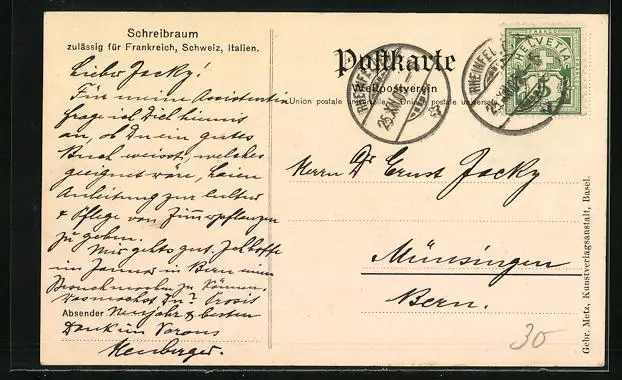 Schreibraum
zulässig für Frankreich, Schweiz, Italien.
Lieber Jacky!
Für meine Assistentin
frage ich Dich hiemit
an, ob Du ein gutes
Buch weisst, welches
geeignet wäre, Laien
Anleitung zur Cultur
& Pflege von Zimmerpflanzen
zu geben.
Mir gehts gut. Ich hoffe
im Januar in Bern einen
Besuch machen zu können.
Was machst Du? Prosit
Absender Neujahr & besten
Dank im Voraus
Postkarte
Weltpostverein
Union postale universelle. Union postale universale
RHEINFEL
25.XII.
RHEINFEL
FRANCO
HELVETIA
5
Herrn Dr Ernst Jacky
Münsingen
Bern.
Gebr. Metz, Kunstverlagsanstalt, Basel.
30